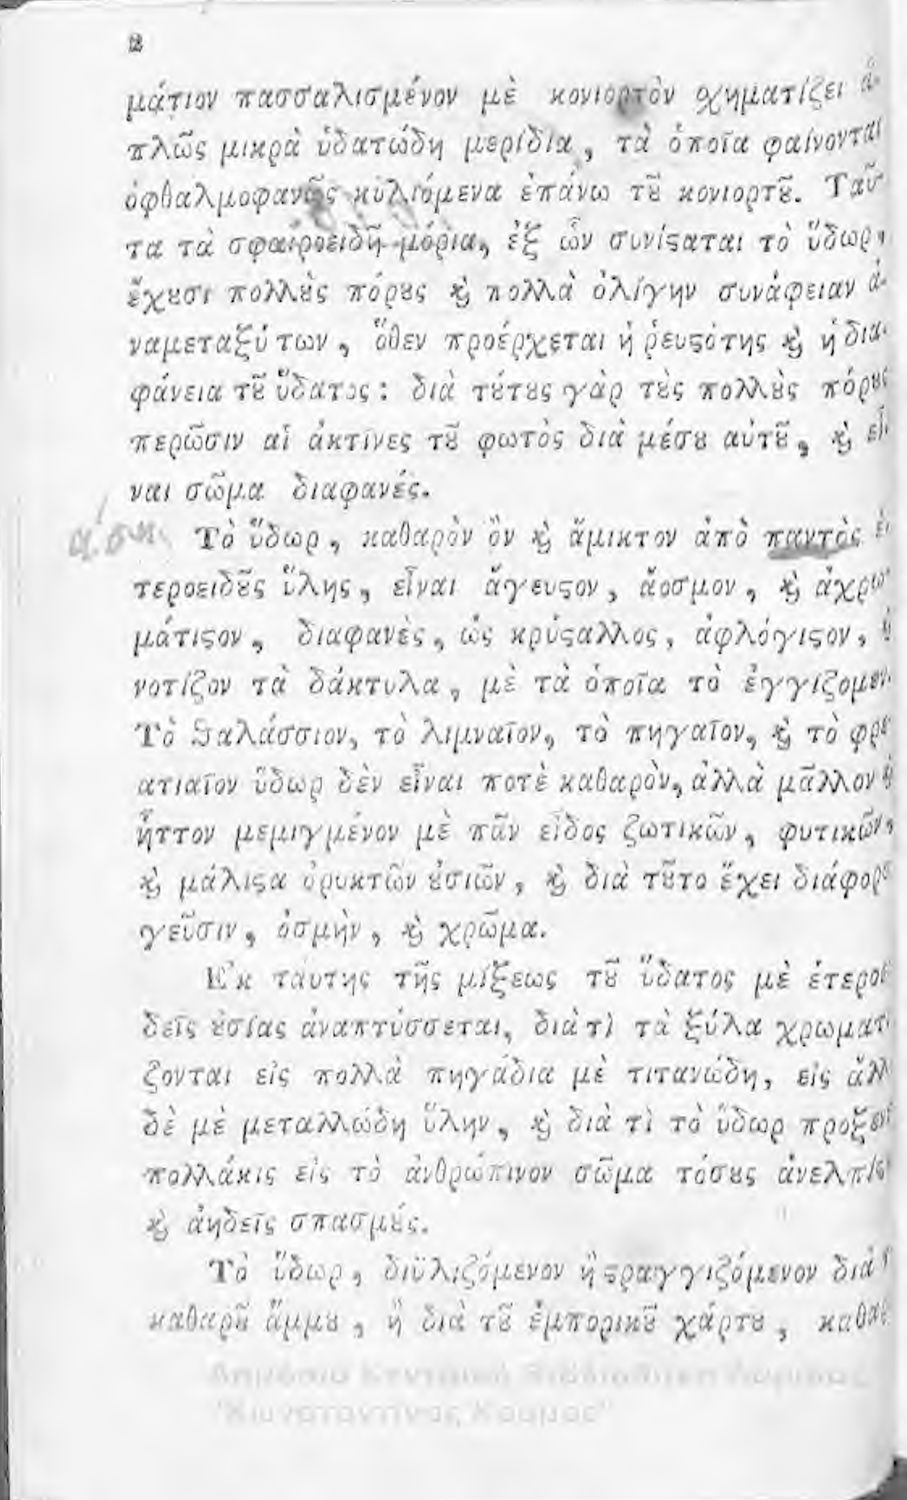 2
μάτιον πασσαλισμένον μὲ κονιορτὸν σχηματίζει ἁ-
πλῶς μικρὰ ὑδατώδη μερίδια, τὰ ὁποῖα φαίνονται
ὀφθαλμοφανῶς κυλιόμενα ἐπάνω τȣ͂ κονιορτȣ͂. Ταῦ-
τα τὰ σφαιροειδῆ μόρια, ἐξ ὧν συνίϛαται τὸ ὕδωρ,
ἔχȣσι πολλȣ̀ς πόρȣς ϗ̀ πολλὰ ὀλίγην συνάφειαν ἀ-
ναμεταξύ των, ὅθεν προέρχεται ἡ ῥευϛότης ϗ̀ ἡ δια-
φάνεια τȣ͂ ὕδατος: διὰ τȣ́τȣς γὰρ τȣ̀ς πολλȣ̀ς πόρȣς
περῶσιν αἱ ἀκτίνες τȣ͂ φωτὸς διὰ μέσȣ αὐτȣ͂, ϗ̀ εἶ-
ναι σῶμα διαφανές.
Τὸ ὕδωρ, καθαρὸν ὂν ϗ̀ ἄμικτον ἀπὸ παντὸς ἑ-
τεροειδȣ͂ς ὕλης, εἶναι ἄγευϛον, ἄοσμον, ϗ̀ ἀχρω-
μάτιϛον, διαφανὲς, ὡς κρύϛαλλος, ἀφλόγιϛον,
νοτίζον τὰ δάκτυλα, μὲ τὰ ὁποῖα τὸ ἐγγίζομεν
Τὸ θαλάσσιον, τὸ λιμναῖον, τὸ πηγαῖον, ϗ̀ τὸ φρε-
ατιαῖον ὕδωρ δὲν εἶναι ποτὲ καθαρὸν, ἀλλὰ μᾶλλον ἢ
ἧττον μεμιγμένον μὲ πᾶν εἶδος ζωτικῶν, φυτικῶν,
ϗ̀ μάλιϛα ὀρυκτῶν ȣ̓σιῶν, ϗ̀ διὰ τȣ͂το ἔχει διάφορο
γεῦσιν, ὀσμὴν, ϗ̀ χρῶμα.
Ἐκ ταύτης τῆς μίξεως τȣ͂ ὕδατος μὲ ἑτεροε
δεῖς ȣ̓σίας ἀναπτύσσεται, διὰ τὶ τὰ ξύλα χρωματ
ζονται εἰς πολλὰ πηγάδια μὲ τιτανώδη, εἰς ἄλλ
δὲ μὲ μεταλλώδη ὕλην, ϗ̀ διὰ τὶ τὸ ὕδωρ προξεν
πολλάκις εἰς τὸ ἀνθρώπινον σῶμα τόσȣς ἀνελπίϛ
ϗ̀ ἀηδεῖς σπασμȣ́ς.
Τὸ ὕδωρ, διϋλιζόμενον ἢ ϛραγγιζόμενον διὰ
καθαρȣ͂ ἄμμȣ, ἢ διὰ τȣ͂ ἐμπορικȣ͂ χάρτȣ, καθα
Δημόσια Κεντρική Βιβλιοθήκη
"Κωνσταντίνος Κούμας"